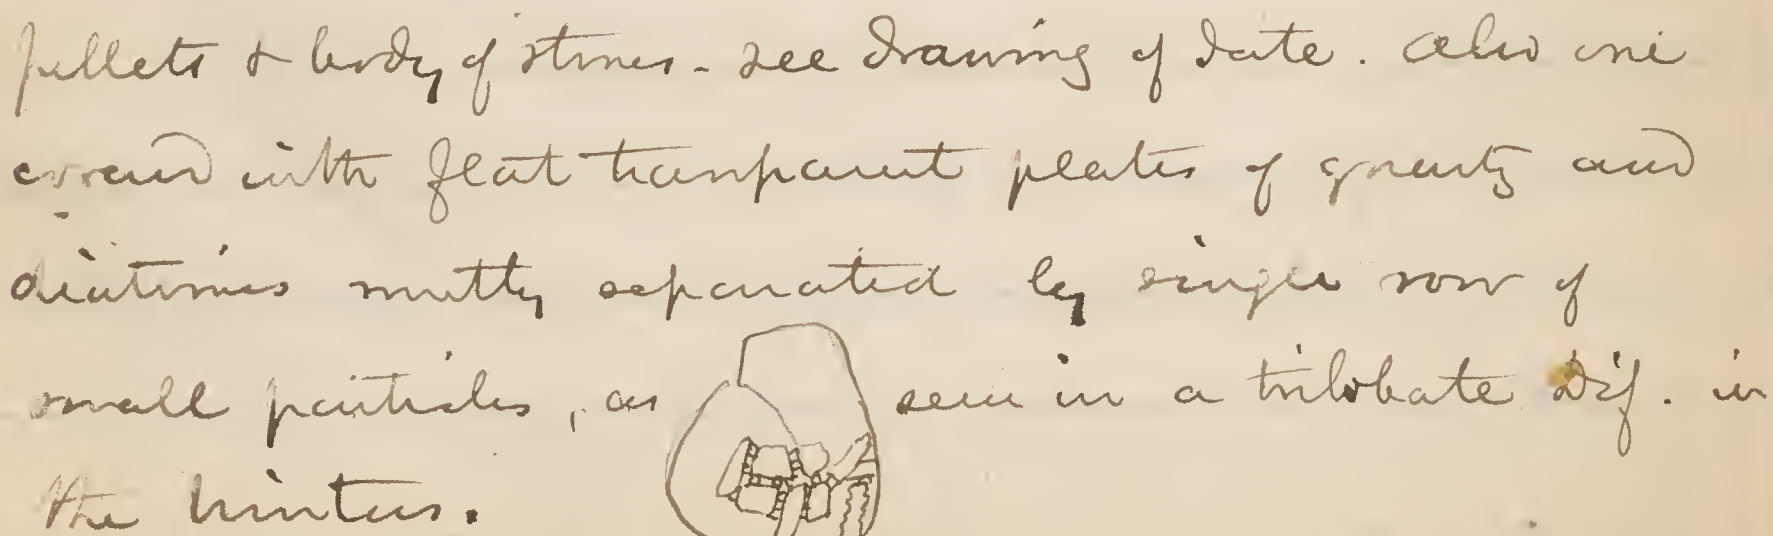 pellets & body of stones - see drawing of date. Also one
covered with flat transparent plates of quartz and
diatomes mostly separated by single row of
small particles, as seen in a trilobate Dif. in
the winter.